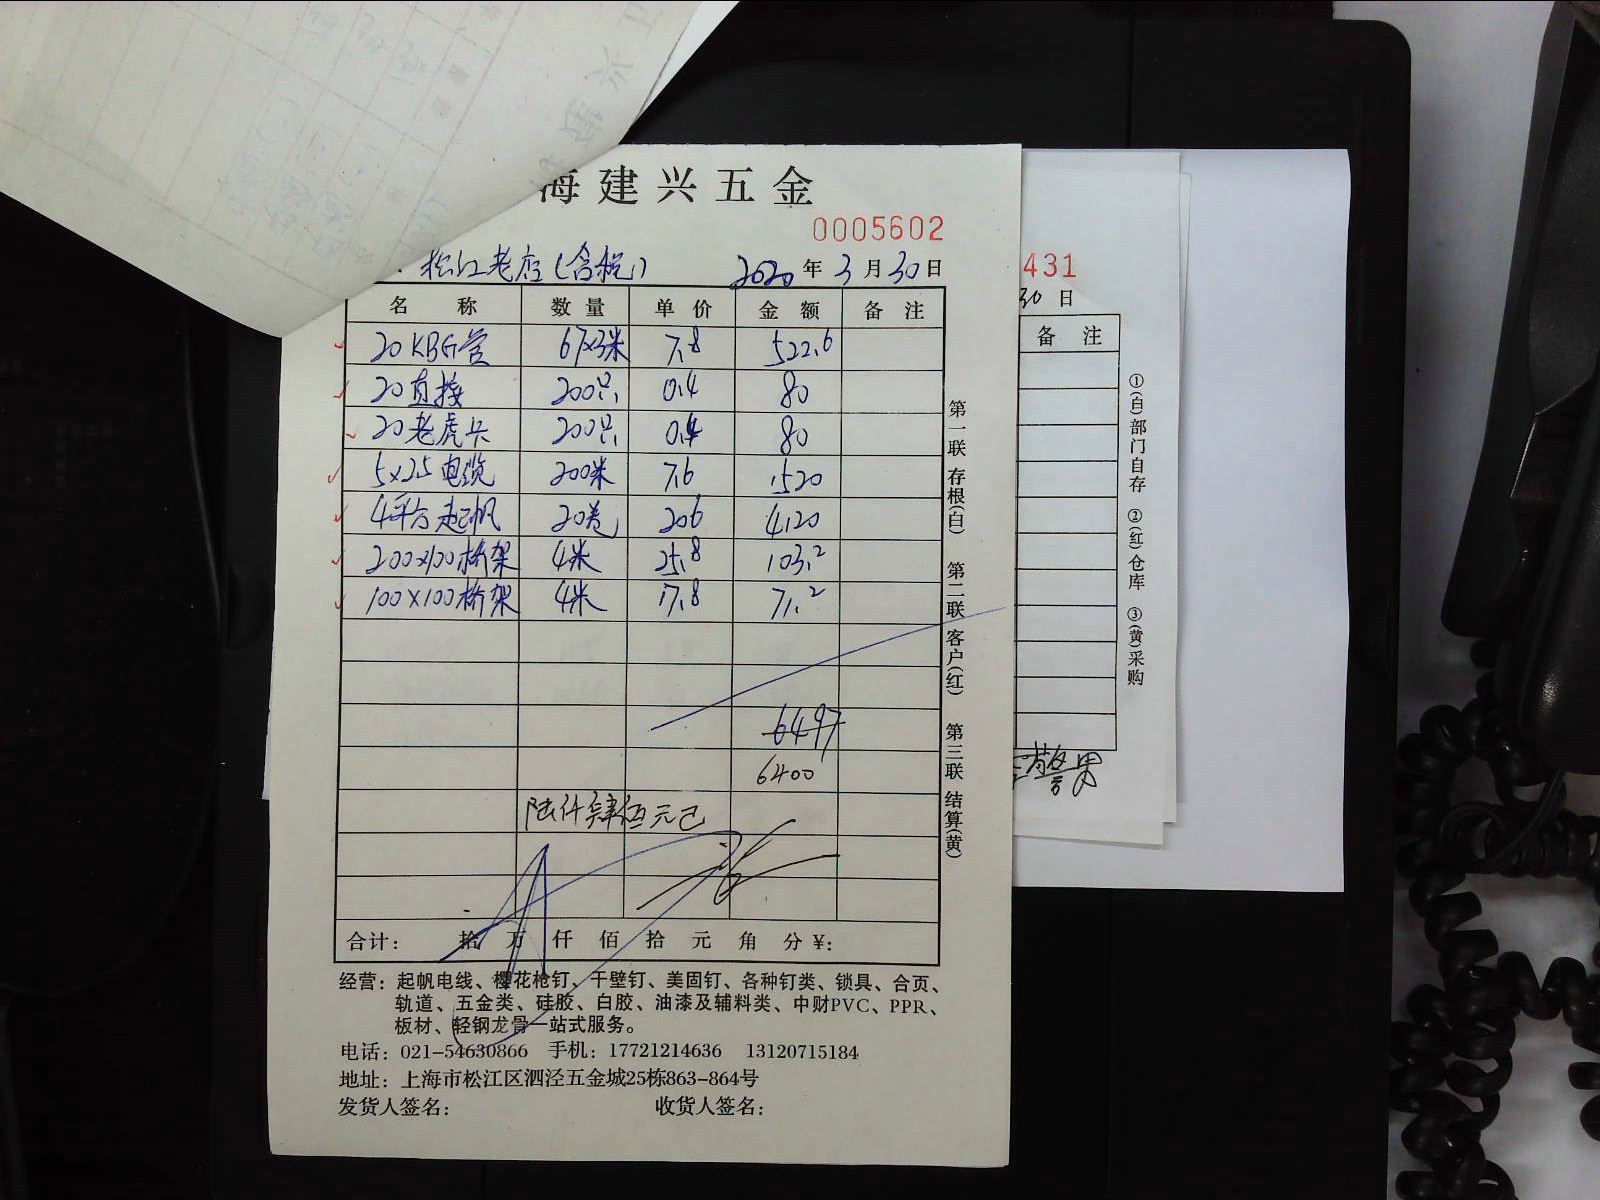 海建兴五金
0005602
松江老店(含税) 2020年3月30日
名称 数量 单价 金额 备注
20KBG管 67×3米 7.8 522.6
20直接 200只 0.4 80
20老虎卡 200只 0.4 80
5×2.5电缆 200米 7.6 1520
4平方起帆 20卷 206 4120
200×100桥架 4米 25.8 103.2
100×100桥架 4米 17.8 71.2
6497
6400
陆仟肆佰元
合计: 拾 万 仟 佰 拾 元 角 分 ¥:
经营:起帆电线、樱花枪钉、干壁钉、美固钉、各种钉类、锁具、合页、
轨道、五金类、硅胶、白胶、油漆及辅料类、中财PVC、PPR、
板材、轻钢龙骨一站式服务。
电话:021-54630866 手机:17721214636 13120715184
地址:上海市松江区泗泾五金城25栋863-864号
发货人签名: 收货人签名:
第一联 存根(白) 第二联 客户(红) 第三联 结算(黄)
431
30日
备注
①(白)部门自存 ②(红)仓库 ③(黄)采购